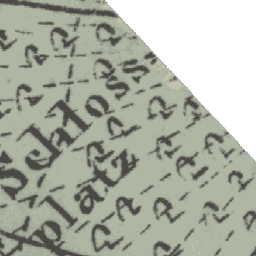 Schloss-
platz